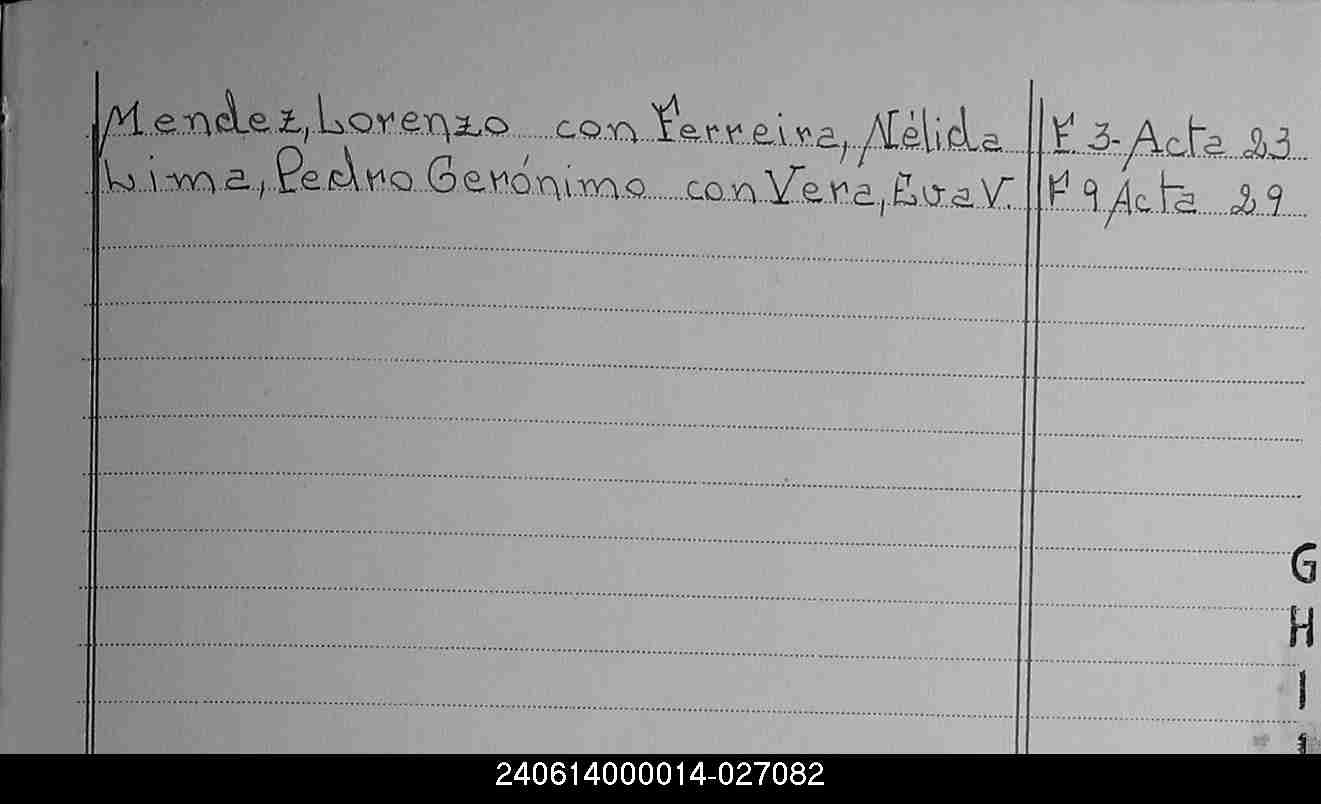 Mendez, Lorenzo con Ferreira, Nélida F 3-Acta 23
Lima, Pedro Gerónimo con Vera, Eva V. F 9 Acta 29
G
H
I
240614000014-027082